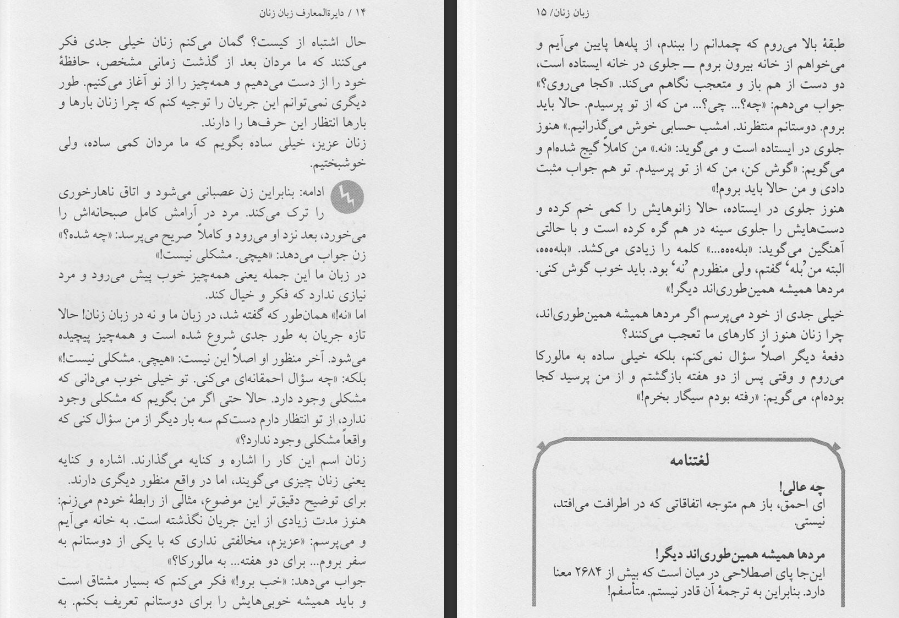 ۱۴ / دایرة‌المعارف زبان زنان
حال اشتباه از کیست؟ گمان می‌کنم زنان خیلی جدی فکر
می‌کنند که ما مردان بعد از گذشت زمانی مشخص، حافظهٔ
خود را از دست می‌دهیم و همه‌چیز را از نو آغاز می‌کنیم. طور
دیگری نمی‌توانم این جریان را توجیه کنم که چرا زنان بارها و
بارها انتظار این حرف‌ها را دارند.
زنان عزیز، خیلی ساده بگویم که ما مردان کمی ساده، ولی
خوشبختیم.
ادامه: بنابراین زن عصبانی می‌شود و اتاق ناهارخوری
را ترک می‌کند. مرد در آرامش کامل صبحانه‌اش را
می‌خورد، بعد نزد او می‌رود و کاملاً صریح می‌پرسد: «چه شده؟»
زن جواب می‌دهد: «هیچی. مشکلی نیست!»
در زبان ما این جمله یعنی همه‌چیز خوب پیش می‌رود و مرد
نیازی ندارد که فکر و خیال کند.
اما «نه!» همان‌طور که گفته شد، در زبان ما و نه در زبان زنان! حالا
تازه جریان به طور جدی شروع شده است و همه‌چیز پیچیده
می‌شود. آخر منظور او اصلاً این نیست: «هیچی. مشکلی نیست!»
بلکه: «چه سؤال احمقانه‌ای می‌کنی. تو خیلی خوب می‌دانی که
مشکلی وجود دارد. حالا حتی اگر من بگویم که مشکلی وجود
ندارد، از تو انتظار دارم دست‌کم سه بار دیگر از من سؤال کنی که
واقعاً مشکلی وجود ندارد؟»
زنان اسم این کار را اشاره و کنایه می‌گذارند. اشاره و کنایه
یعنی زنان چیزی می‌گویند، اما در واقع منظور دیگری دارند.
برای توضیح دقیق‌تر این موضوع، مثالی از رابطهٔ خودم می‌زنم:
هنوز مدت زیادی از این جریان نگذشته است. به خانه می‌آیم
و می‌پرسم: «عزیزم، مخالفتی نداری که با یکی از دوستانم به
سفر بروم... برای دو هفته... به مالورکا؟»
جواب می‌دهد: «خب برو!» فکر می‌کنم که بسیار مشتاق است
و باید همیشه خوبی‌هایش را برای دوستانم تعریف بکنم. به
زبان زنان/ ۱۵
طبقهٔ بالا می‌روم که چمدانم را ببندم، از پله‌ها پایین می‌آیم و
می‌خواهم از خانه بیرون بروم ــ جلوی در خانه ایستاده است،
دو دست از هم باز و متعجب نگاهم می‌کند. «کجا می‌روی؟»
جواب می‌دهم: «چه؟... چی؟... من که از تو پرسیدم. حالا باید
بروم. دوستانم منتظرند. امشب حسابی خوش می‌گذرانیم.» هنوز
جلوی در ایستاده است و می‌گوید: «نه.» من کاملاً گیج شده‌ام و
می‌گویم: «گوش کن، من که از تو پرسیدم. تو هم جواب مثبت
دادی و من حالا باید بروم!»
هنوز جلوی در ایستاده، حالا زانوهایش را کمی خم کرده و
دست‌هایش را جلوی سینه در هم گره کرده است و با حالتی
آهنگین می‌گوید: «بله‌ههه...» کلمه را زیادی می‌کشد. «بله‌ههه،
البته من ’بله‘ گفتم، ولی منظورم ’نه‘ بود. باید خوب گوش کنی.
مردها همیشه همین‌طوری‌اند دیگر!»
خیلی جدی از خود می‌پرسم اگر مردها همیشه همین‌طوری‌اند،
چرا زنان هنوز از کارهای ما تعجب می‌کنند؟
دفعهٔ دیگر اصلاً سؤال نمی‌کنم، بلکه خیلی ساده به مالورکا
می‌روم و وقتی پس از دو هفته بازگشتم و از من پرسید کجا
بوده‌ام، می‌گویم: «رفته بودم سیگار بخرم!»
لغتنامه
چه عالی!
ای احمق، باز هم متوجه اتفاقاتی که در اطرافت می‌افتد،
نیستی.
مردها همیشه همین‌طوری‌اند دیگر!
این‌جا پای اصطلاحی در میان است که بیش از ۲۶۸۴ معنا
دارد. بنابراین به ترجمهٔ آن قادر نیستم. متأسفم!